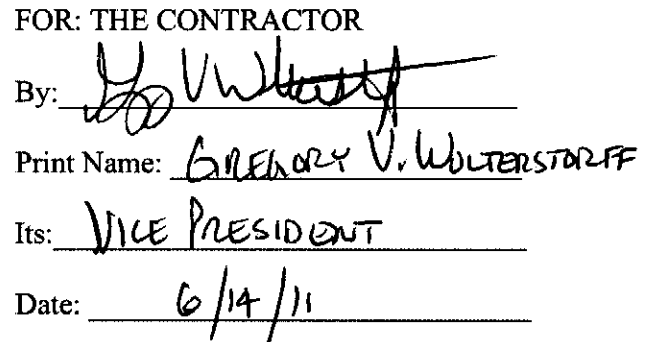 FOR: THE CONTRACTOR
By:
Print Name: GREGORY V. WOLTERSTORFF
Its: VICE PRESIDENT
Date: 6/14/11